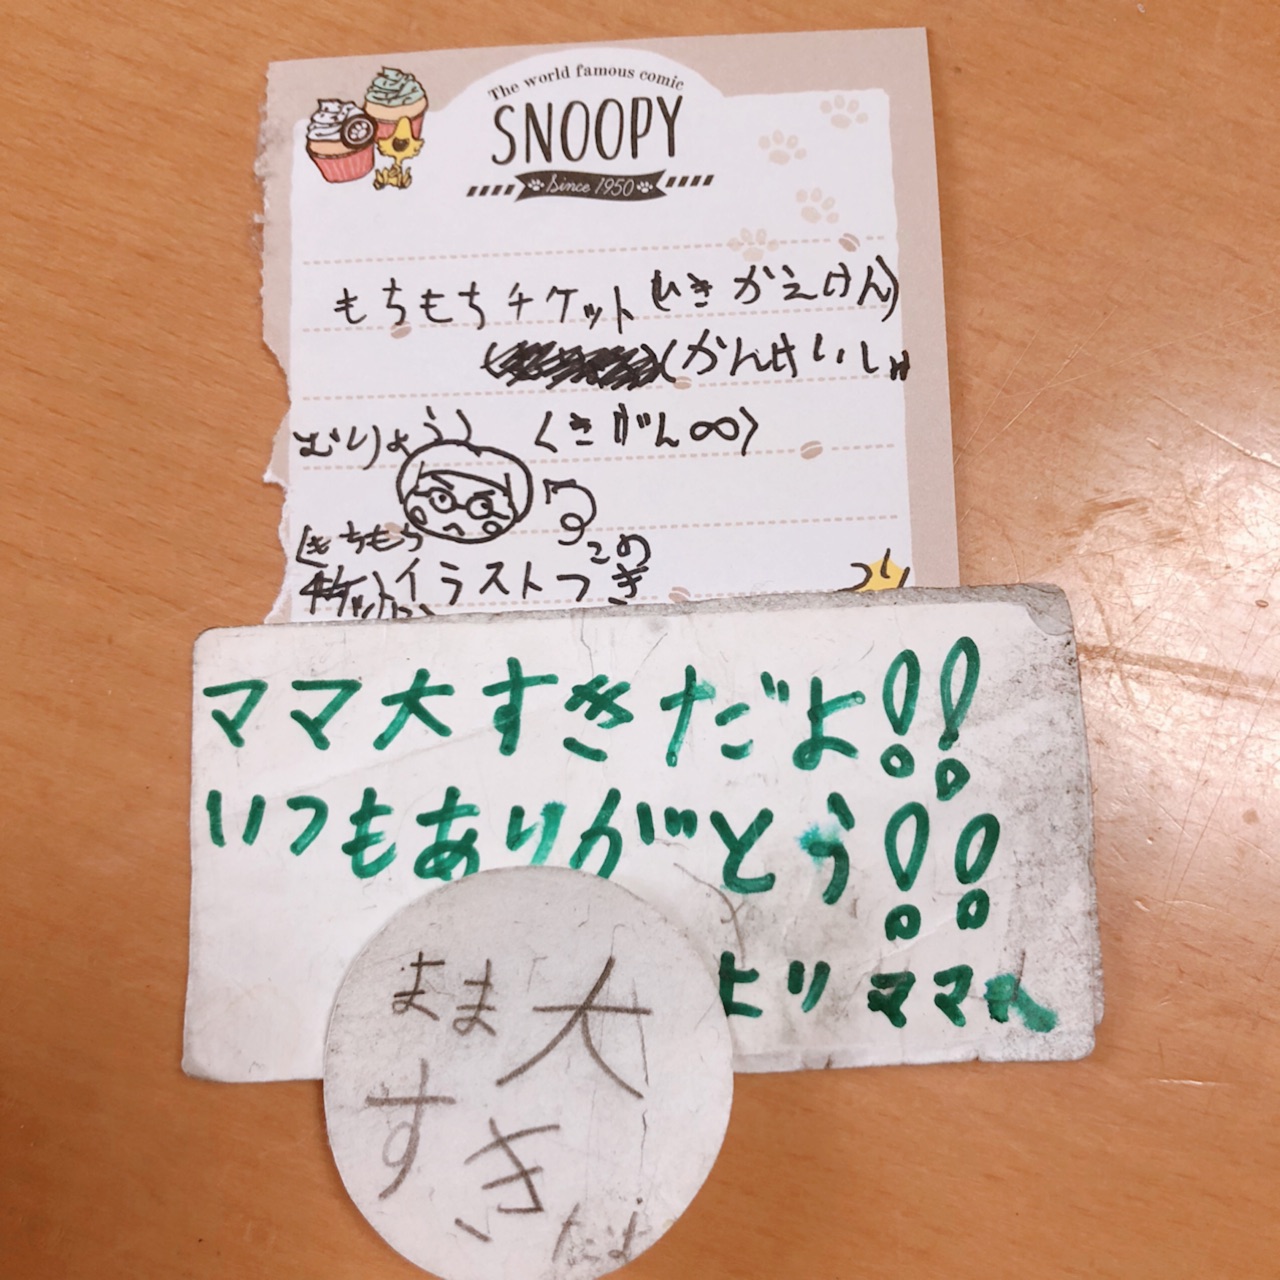 The world famous comic
SNOOPY
Since 1950
もちもちチケット(ひきかえけん)
(かんけいしゃ
むりょう 〈きげん∞〉
この
イラストつき
ママ大すきだよ!!
いつもありがとう!!
よりママへ
まま大
すき
だよ